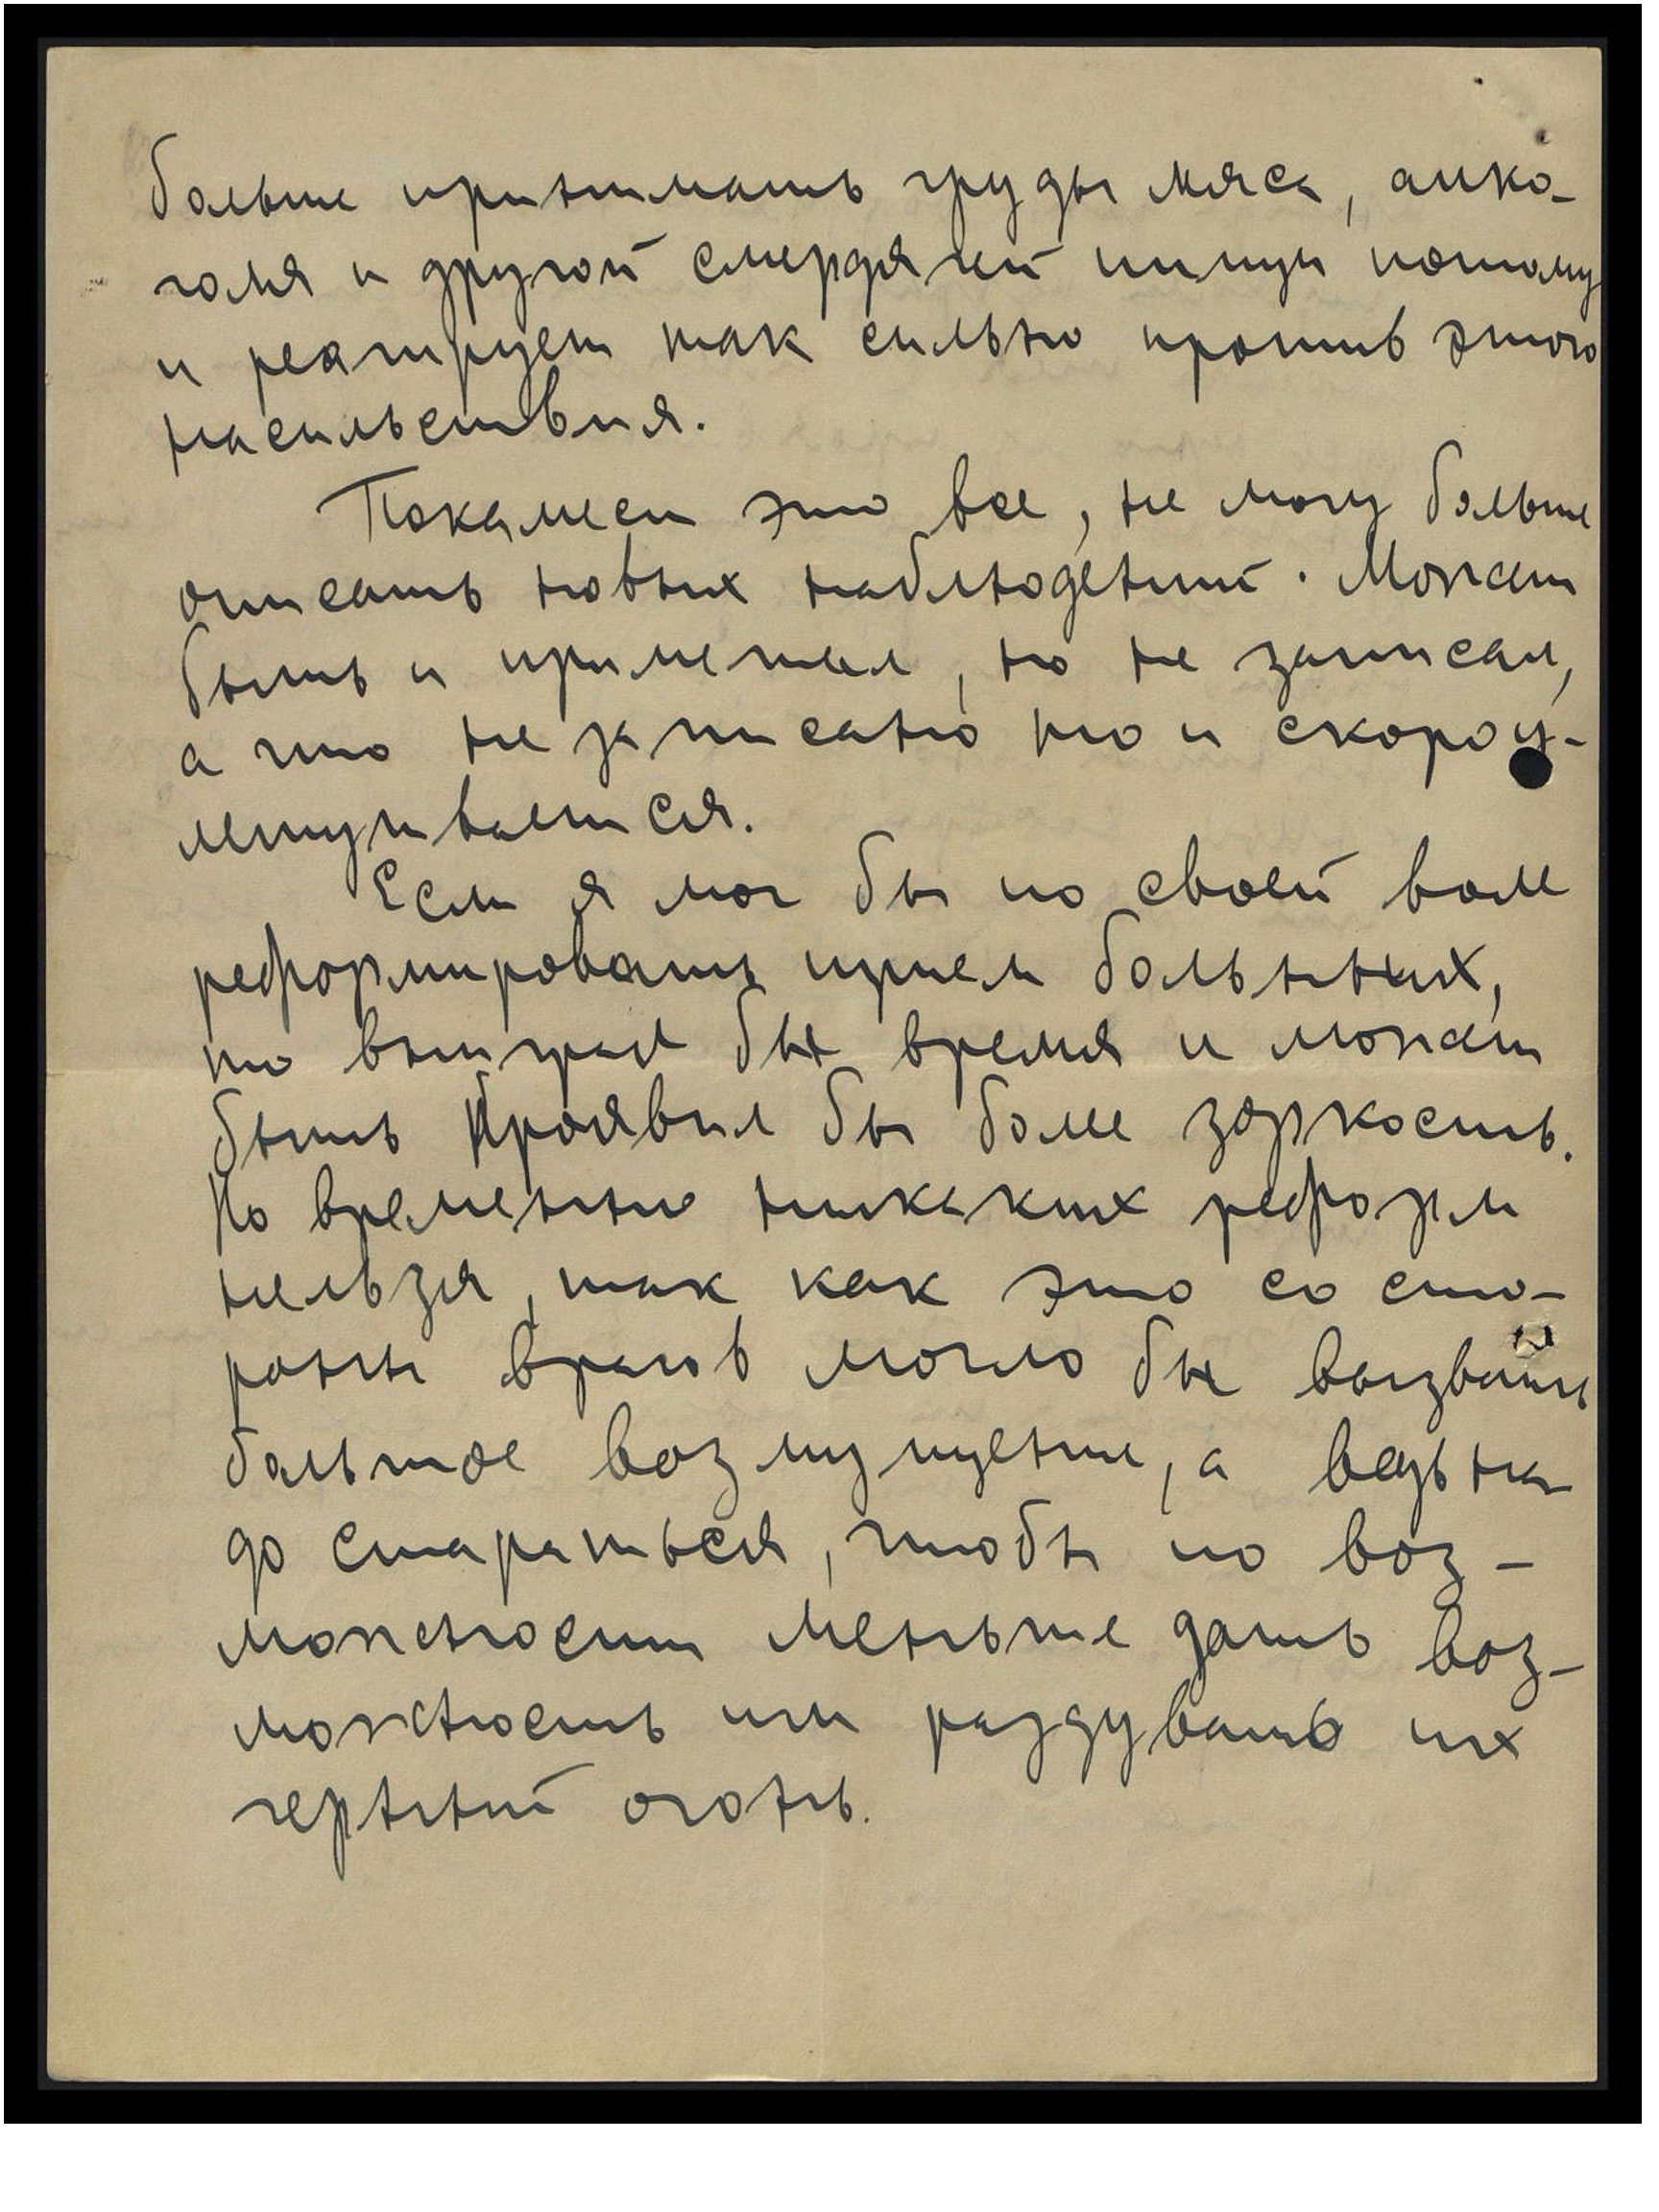 больше принимать груды мяса, алко-
голя и другой смердячей пищи потому
и реагирует так сильно против этого
насильствия.
Покамест это все, не могу больше
описать новых наблюдений. Может
быть и применял, но не записал,
а что не записано то и скороу-
летучивается.
Если я мог бы по своей воле
реформировать прием больных,
то выиграл бы время и может
быть проявил бы более зоркость.
Но временно никаких реформ
нельзя, так как это со сто-
роны врагов могло бы вызвать
большое возмущение, а ведь на-
до стараться, чтобы по воз-
можности меньше дать воз-
можность им раздувать их
черный огонь.